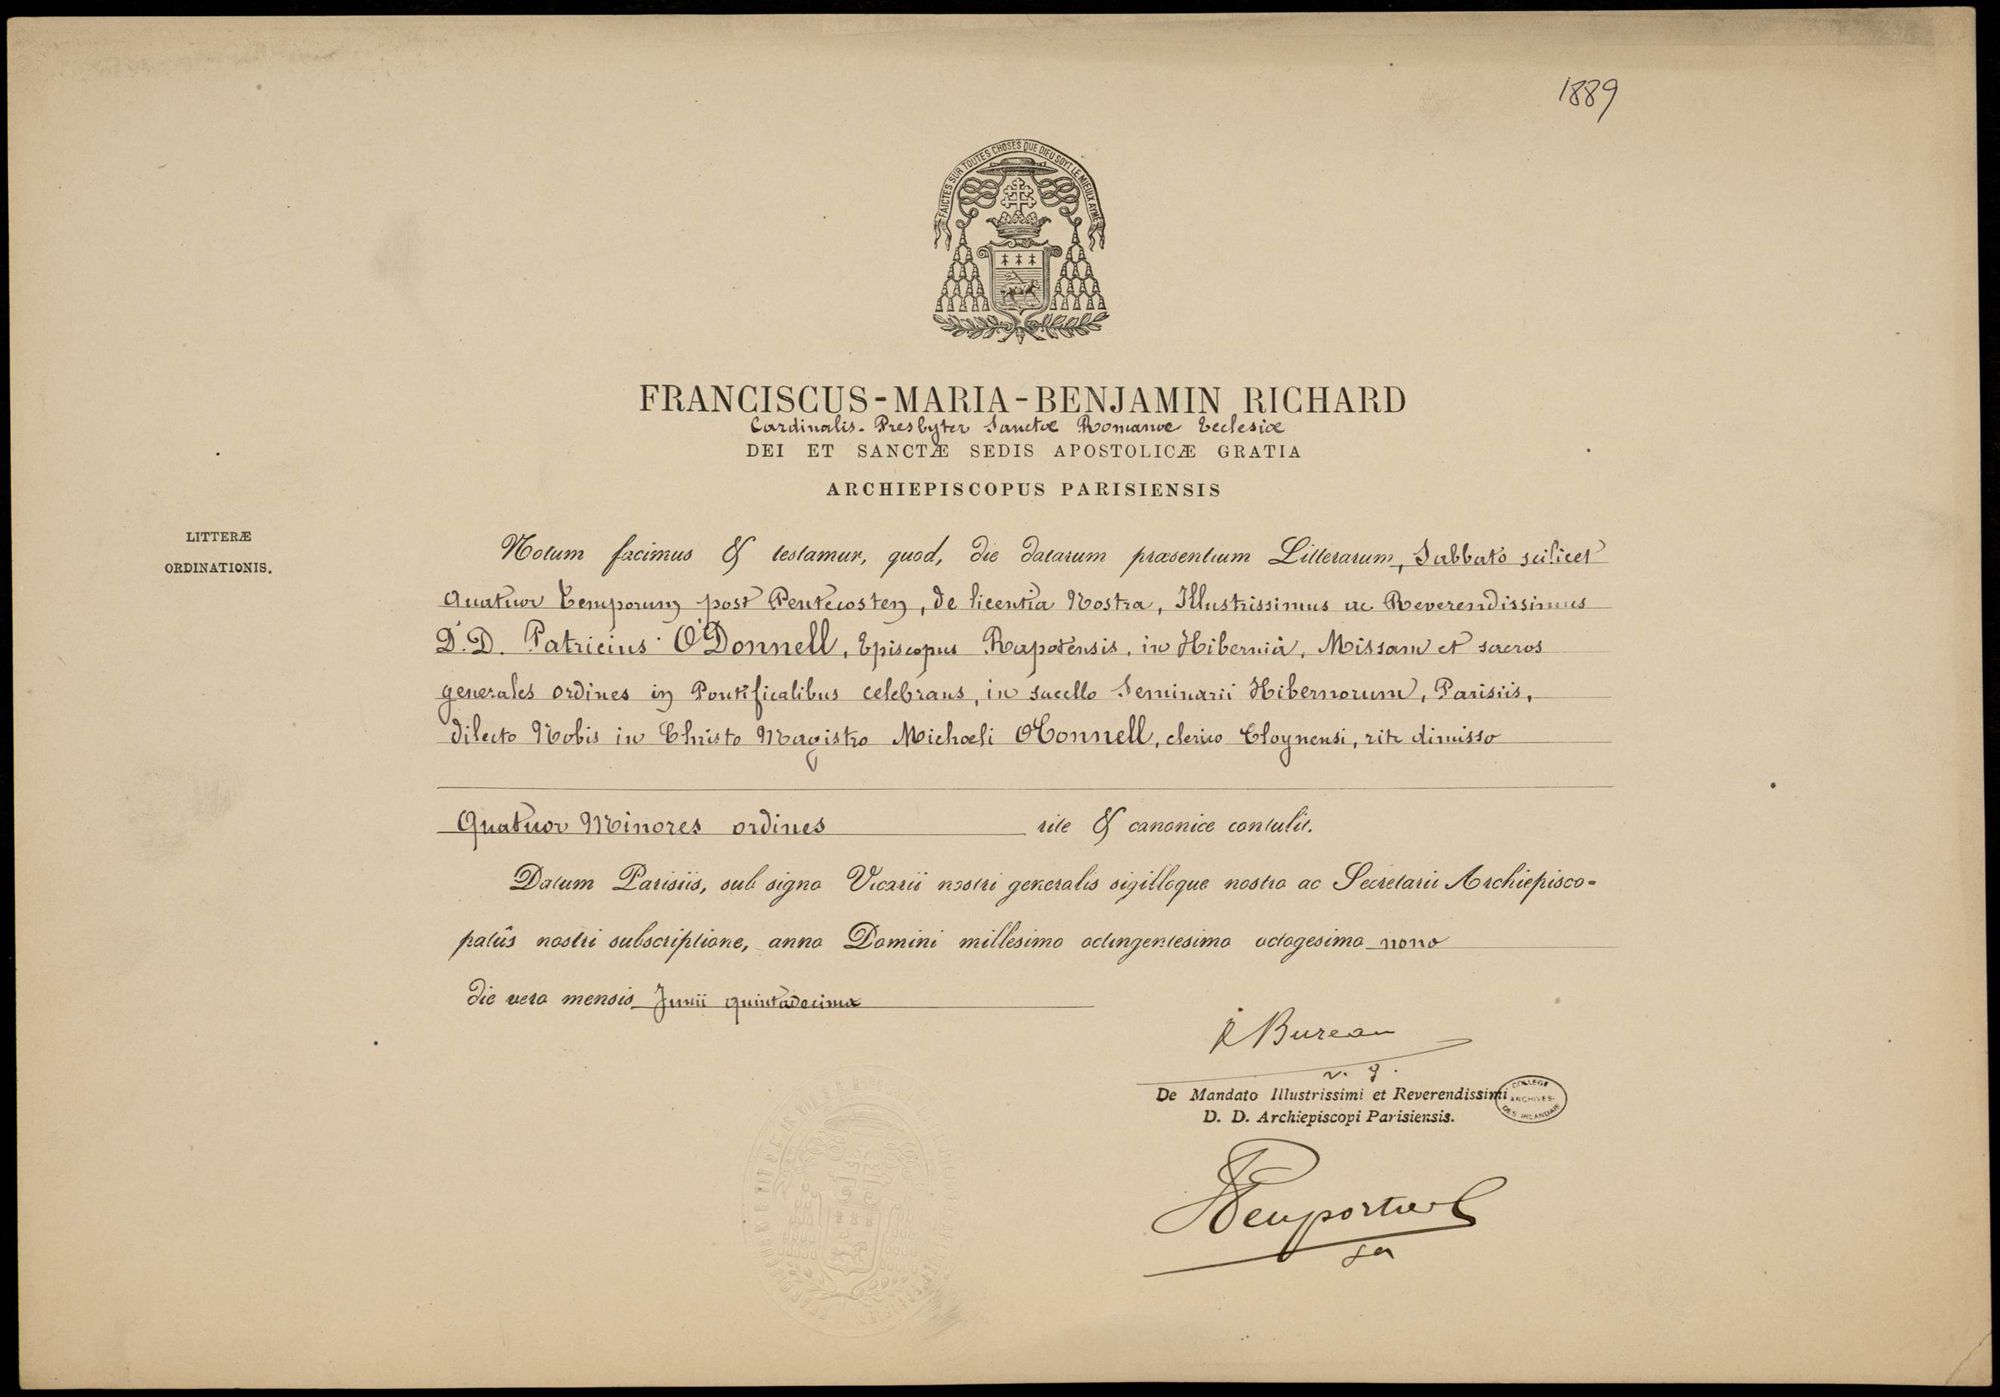 1889
FAICTES SUR TOUTES CHOSES QUE DIEU SOYT LE MIEULX AYMÉ
FRANCISCUS-MARIA-BENJAMIN RICHARD
Cardinalis-Presbyter Sanctæ Romanæ Ecclesiæ
DEI ET SANCTÆ SEDIS APOSTOLICÆ GRATIA
ARCHIEPISCOPUS PARISIENSIS
LITTERÆ
ORDINATIONIS.
Notum facimus & testamur, quod, die datarum præsentium Litterarum, Sabbato scilicet
Quatuor Temporum post Pentecosten, de licentia Nostra, Illustrissimus ac Reverendissimus
D.D. Patricius O'Donnell, Episcopus Rapotensis, in Hiberniâ, Missam et sacros
generales ordines in Pontificalibus celebrans, in sacello Seminarii Hibernorum, Parisiis,
dilecto Nobis in Christo Magistro Michaeli O'Connell, clerico Cloynensi, rite dimisso
Quatuor Minores ordines rite & canonice contulit.
Datum Parisiis, sub signo Vicarii nostri generalis sigilloque nostro ac Secretarii Archiepisco=
patûs nostri subscriptione, anno Domini millesimo octingentesimo octogesimo nono
die vero mensis Junii quintadecima
Bureau
v. g.
De Mandato Illustrissimi et Reverendissimi
D. D. Archiepiscopi Parisiensis.
COLLEGE
ARCHIVES
DES IRLANDAIS